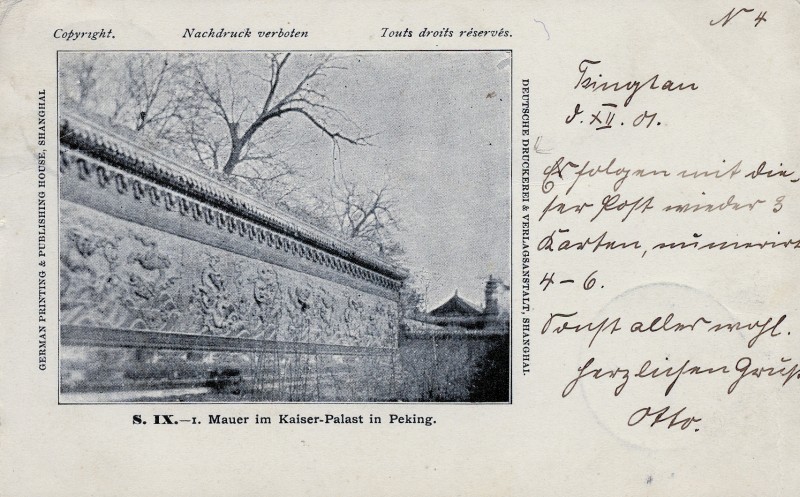 Copyright. Nachdruck verboten Touts droits réservés.
GERMAN PRINTING & PUBLISHING HOUSE, SHANGHAI
DEUTSCHE DRUCKEREI & VERLAGSANSTALT, SHANGHAI.
S. IX.—1. Mauer im Kaiser-Palast in Peking.
N 4
Tsingtau
d. XII. 01.
Es folgen mit die-
ser Post wieder 3
Karten, numerirt
4-6.
Sonst alles wohl.
Herzlichen Gruß
Otto.